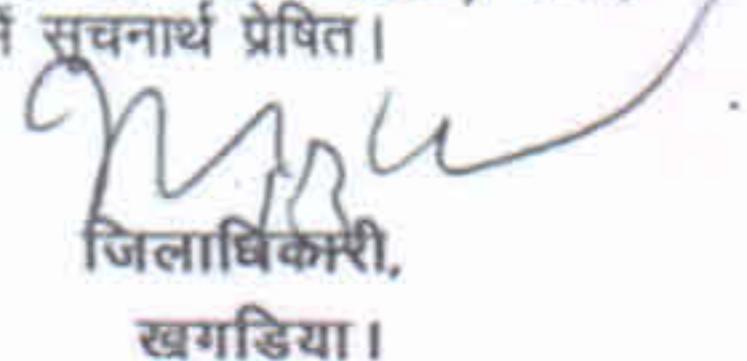 में सूचनार्थ प्रेषित।
जिलाधिकारी,
खगडिया।